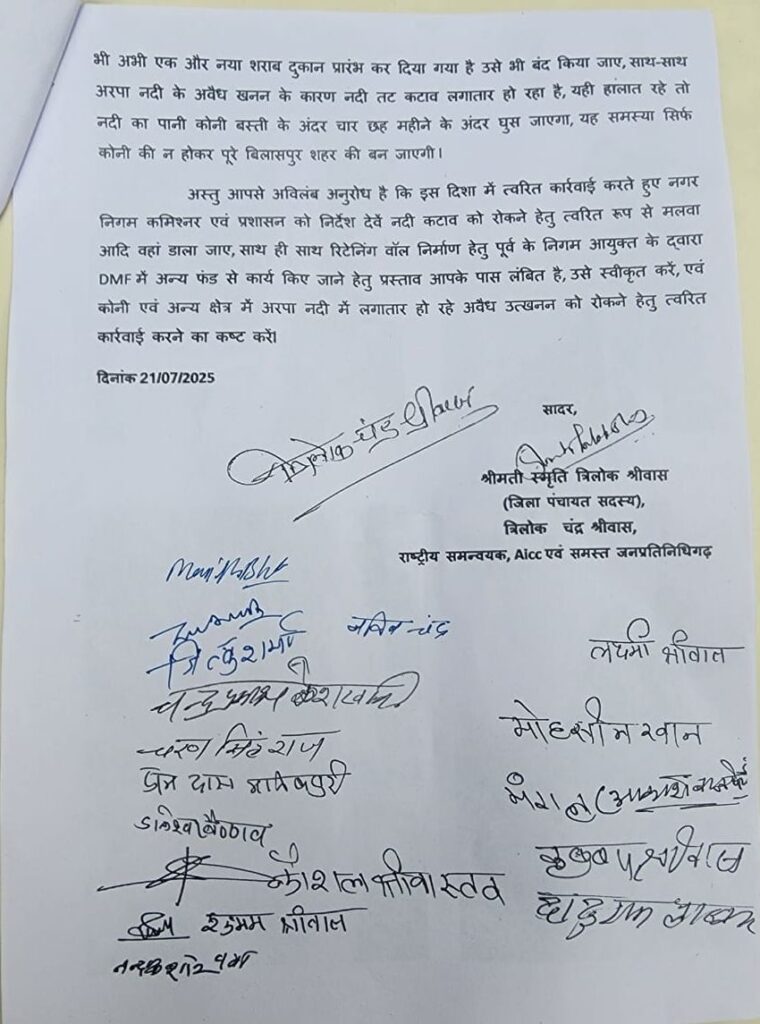 भी अभी एक और नया शराब दुकान प्रारंभ कर दिया गया है उसे भी बंद किया जाए, साथ-साथ
अरपा नदी के अवैध खनन के कारण नदी तट कटाव लगातार हो रहा है, यही हालात रहे तो
नदी का पानी कोनी बस्ती के अंदर चार छह महीने के अंदर घुस जाएगा, यह समस्या सिर्फ
कोनी की न होकर पूरे बिलासपुर शहर की बन जाएगी।
अस्तु आपसे अविलंब अनुरोध है कि इस दिशा में त्वरित कार्रवाई करते हुए नगर
निगम कमिश्नर एवं प्रशासन को निर्देश देवें नदी कटाव को रोकने हेतु त्वरित रूप से मलवा
आदि वहां डाला जाए, साथ ही साथ रिटेनिंग वॉल निर्माण हेतु पूर्व के निगम आयुक्त के द्वारा
DMF में अन्य फंड से कार्य किए जाने हेतु प्रस्ताव आपके पास लंबित है, उसे स्वीकृत करें, एवं
कोनी एवं अन्य क्षेत्र में अरपा नदी में लगातार हो रहे अवैध उत्खनन को रोकने हेतु त्वरित
कार्रवाई करने का कष्ट करें।
दिनांक 21/07/2025
सादर,
श्रीमती स्मृति त्रिलोक श्रीवास
(जिला पंचायत सदस्य),
त्रिलोक चंद्र श्रीवास,
राष्ट्रीय समन्वयक, Aicc एवं समस्त जनप्रतिनिधिगढ़
चंद्र
लक्ष्मी श्रीवास
मोहसीन खान
चरण सिंह राज
प्रेम दास मानिकपुरी
कौशल श्रीवास्तव
श्रीवास